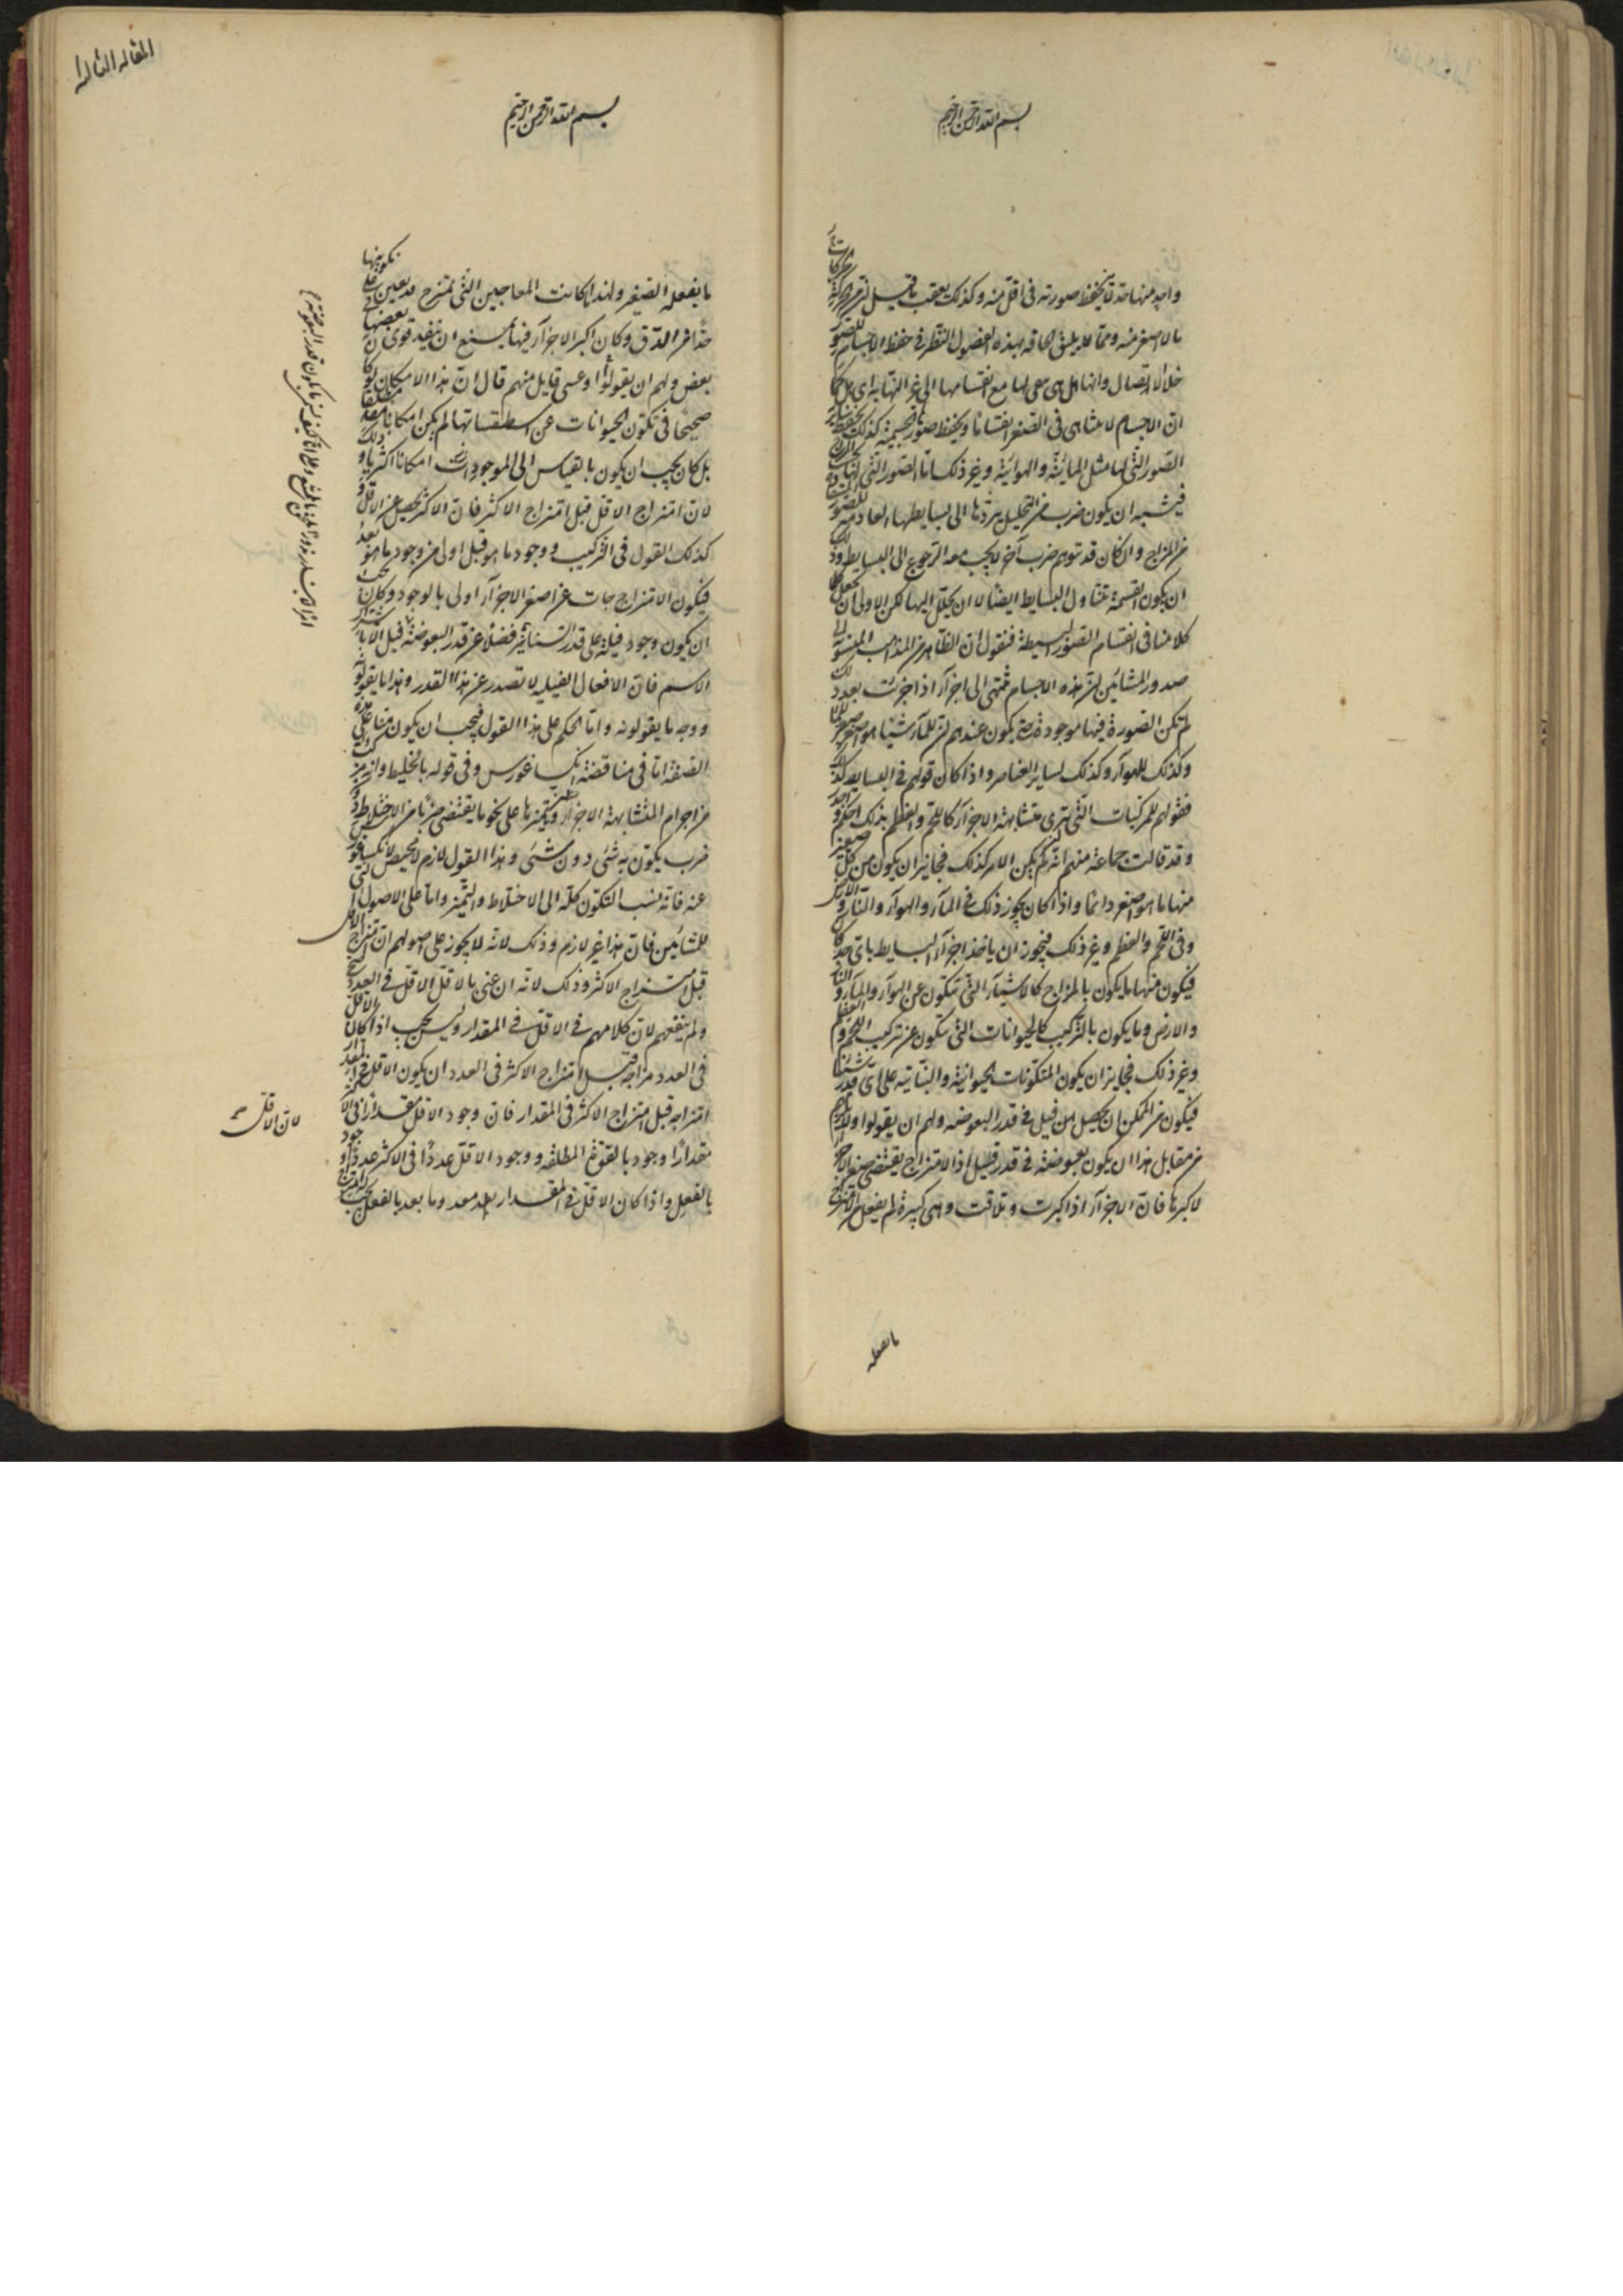 بسم الله الرحمن الرحيم
واحد منها حد لا يحفظ صورته فى اقل منه وكذلك يعقب ما قيل من الحركات
بالاصغر منه ومما يليق الحاقه بهذه الفصول النظر فى حفظ الاجسام للصور
خلال الاتصال وانها هل هى تبقى لها مع انقسامها الى غير النهاية اى هل كما
ان الاجسام لا يتناهى فى الصغر انقساما ويحفظ صورة الجسمية كذلك يحفظ ساير
الصور التى لها مثل المائية والهوائية وغير ذلك اما الصور التى لها
فيشبه ان يكون ضرب من التحليل يردها الى بسايطها العادمة للصور
من المزاج وان كان قد يتوهم ضرب آخر لا يجب معه الرجوع الى البسايط وذلك
ان يكون القسمة تتناول البسايط ايضا لا ان يحلل اليها لكن الاولى ان نجعل
كلامنا فى انقسام الصور البسيطة فنقول ان الظاهر من المذهب المنسوب الى
صدور المشائين ان هذه الاجسام تنتهى الى اجزآء اذا جزئت بعد ذلك
لم تكن الصورة فيها موجودة حتى يكون عندهم ان للمآء شيئا هو اصغر صغير المآء
وكذلك للهوآء وكذلك لساير العناصر واذا كان قولهم فى البسايط كذلك
فقولهم للمركبات التى ترى متشابهة الاجزآء كاللحم والعظم بذلك احكم
وقد قالت جماعة منهم انه لو لم يكن الامر كذلك فجايز ان يكون من كل صغير
منها ما هو اصغر دائما واذا كان يجوز ذلك فى المآء والهوآء والنار والارض
وفى اللحم والعظم وغير ذلك فيجوز ان ياخذ اجزآء البسايط باى حد كان
فيكون منها ما يكون بالمزاج كالاشيآء التى تتكون عن الهوآء والمآء والنار
والارض وما يكون بالتركيب كالحيوانات التى تتكون عن تركيب اللحم والعظم
وغير ذلك فجايز ان يكون المتكونات الحيوانية والنباتية على اى قدر شئنا
فيكون من الممكن ان يحصل لنا فيل فى قدر البعوضة ولهم ان يقولوا ولا يلزم
من مقابل هذا ان يكون بعوضة فى قدر فيل اذ الامتزاج يقتضى صغر الاجزآء
لا كبرها فان الاجزآء اذا كبرت وتلاقت وهى كبيرة لم يفعل من الامتزاج
ما يفعله
المقاله الثالثة
بسم الله الرحمن الرحيم
ما يفعله الصغير ولهذا كانت المعاجين التى تمتزج قد يعين على تكونها
حدا من الدق وكان اكبر الاجزآء فيها يمنع ان ينفذ قوى بعضها فى
بعض ولهم ان يقولوا او عسى قايل منهم قال ان هذا الامكان لو كان
صحيحا فى تكون الحيوانات عن اسطقساتها لم يكن امكانا مطلقا
بل كان يجب ان يكون بالقياس الى الموجودات امكانا اكثريا وذلك
لان امتزاج الاقل قبل امتزاج الاكثر فان الاكثر يحصل عن الاقل
كذلك القول فى التركيب ووجود ما هو قبل اولى من وجود ما هو بعد
فيكون الامتزاجات عن اصغر الاجزآء اولى بالوجود وكان يجب
ان يكون وجود فيلة على قدر السنانير فضلا عن قدر البعوضة فيل الا باشتراك
الاسم فان الافعال الفيلية لا تصدر عن هذا القدر وهذا ما يقولونه
ووجه ما يقولونه واما الحكم على هذا القول فيجب ان يكون منا على هذه
الصفة اما فى مناقضة انكساغورس وفى قوله بالخليط وانه مركب
من اجرام المتشابهة الاجزآء وتميزها على نحو ما يقتضى ضربا من الاختلاط دون
ضرب يكون به شئ دون شئ وهذا القول لازم لا محيص لانكساغورس
عنه فانه نسب التكون كله الى الاختلاط والتميز واما على الاصول التى
للمشائين فان هذا غير لازم وذلك لانه لا يجوز على اصولهم ان امتزاج الاقل
قبل امتزاج الاكثر وذلك لانه ان عنى بالاقل الاقل فى العدد صح
ولم ينفعهم لان كلامهم فى الاقل فى المقدار وليس يجب اذا كان الاقل
فى العدد مزاجه قبل امتزاج الاكثر فى العدد ان يكون الاقل فى المقدار
امتزاجه قبل امتزاج الاكثر فى المقدار فان وجود الاقل مقدارا فى الاكثر
مقدارا وجود بالقوة المطلقة ووجود الاقل عددا فى الاكثر عددا وجود
بالفعل واذا كان الاقل فى المقدار لم يعد وما يعد بالفعل
لان الاقل